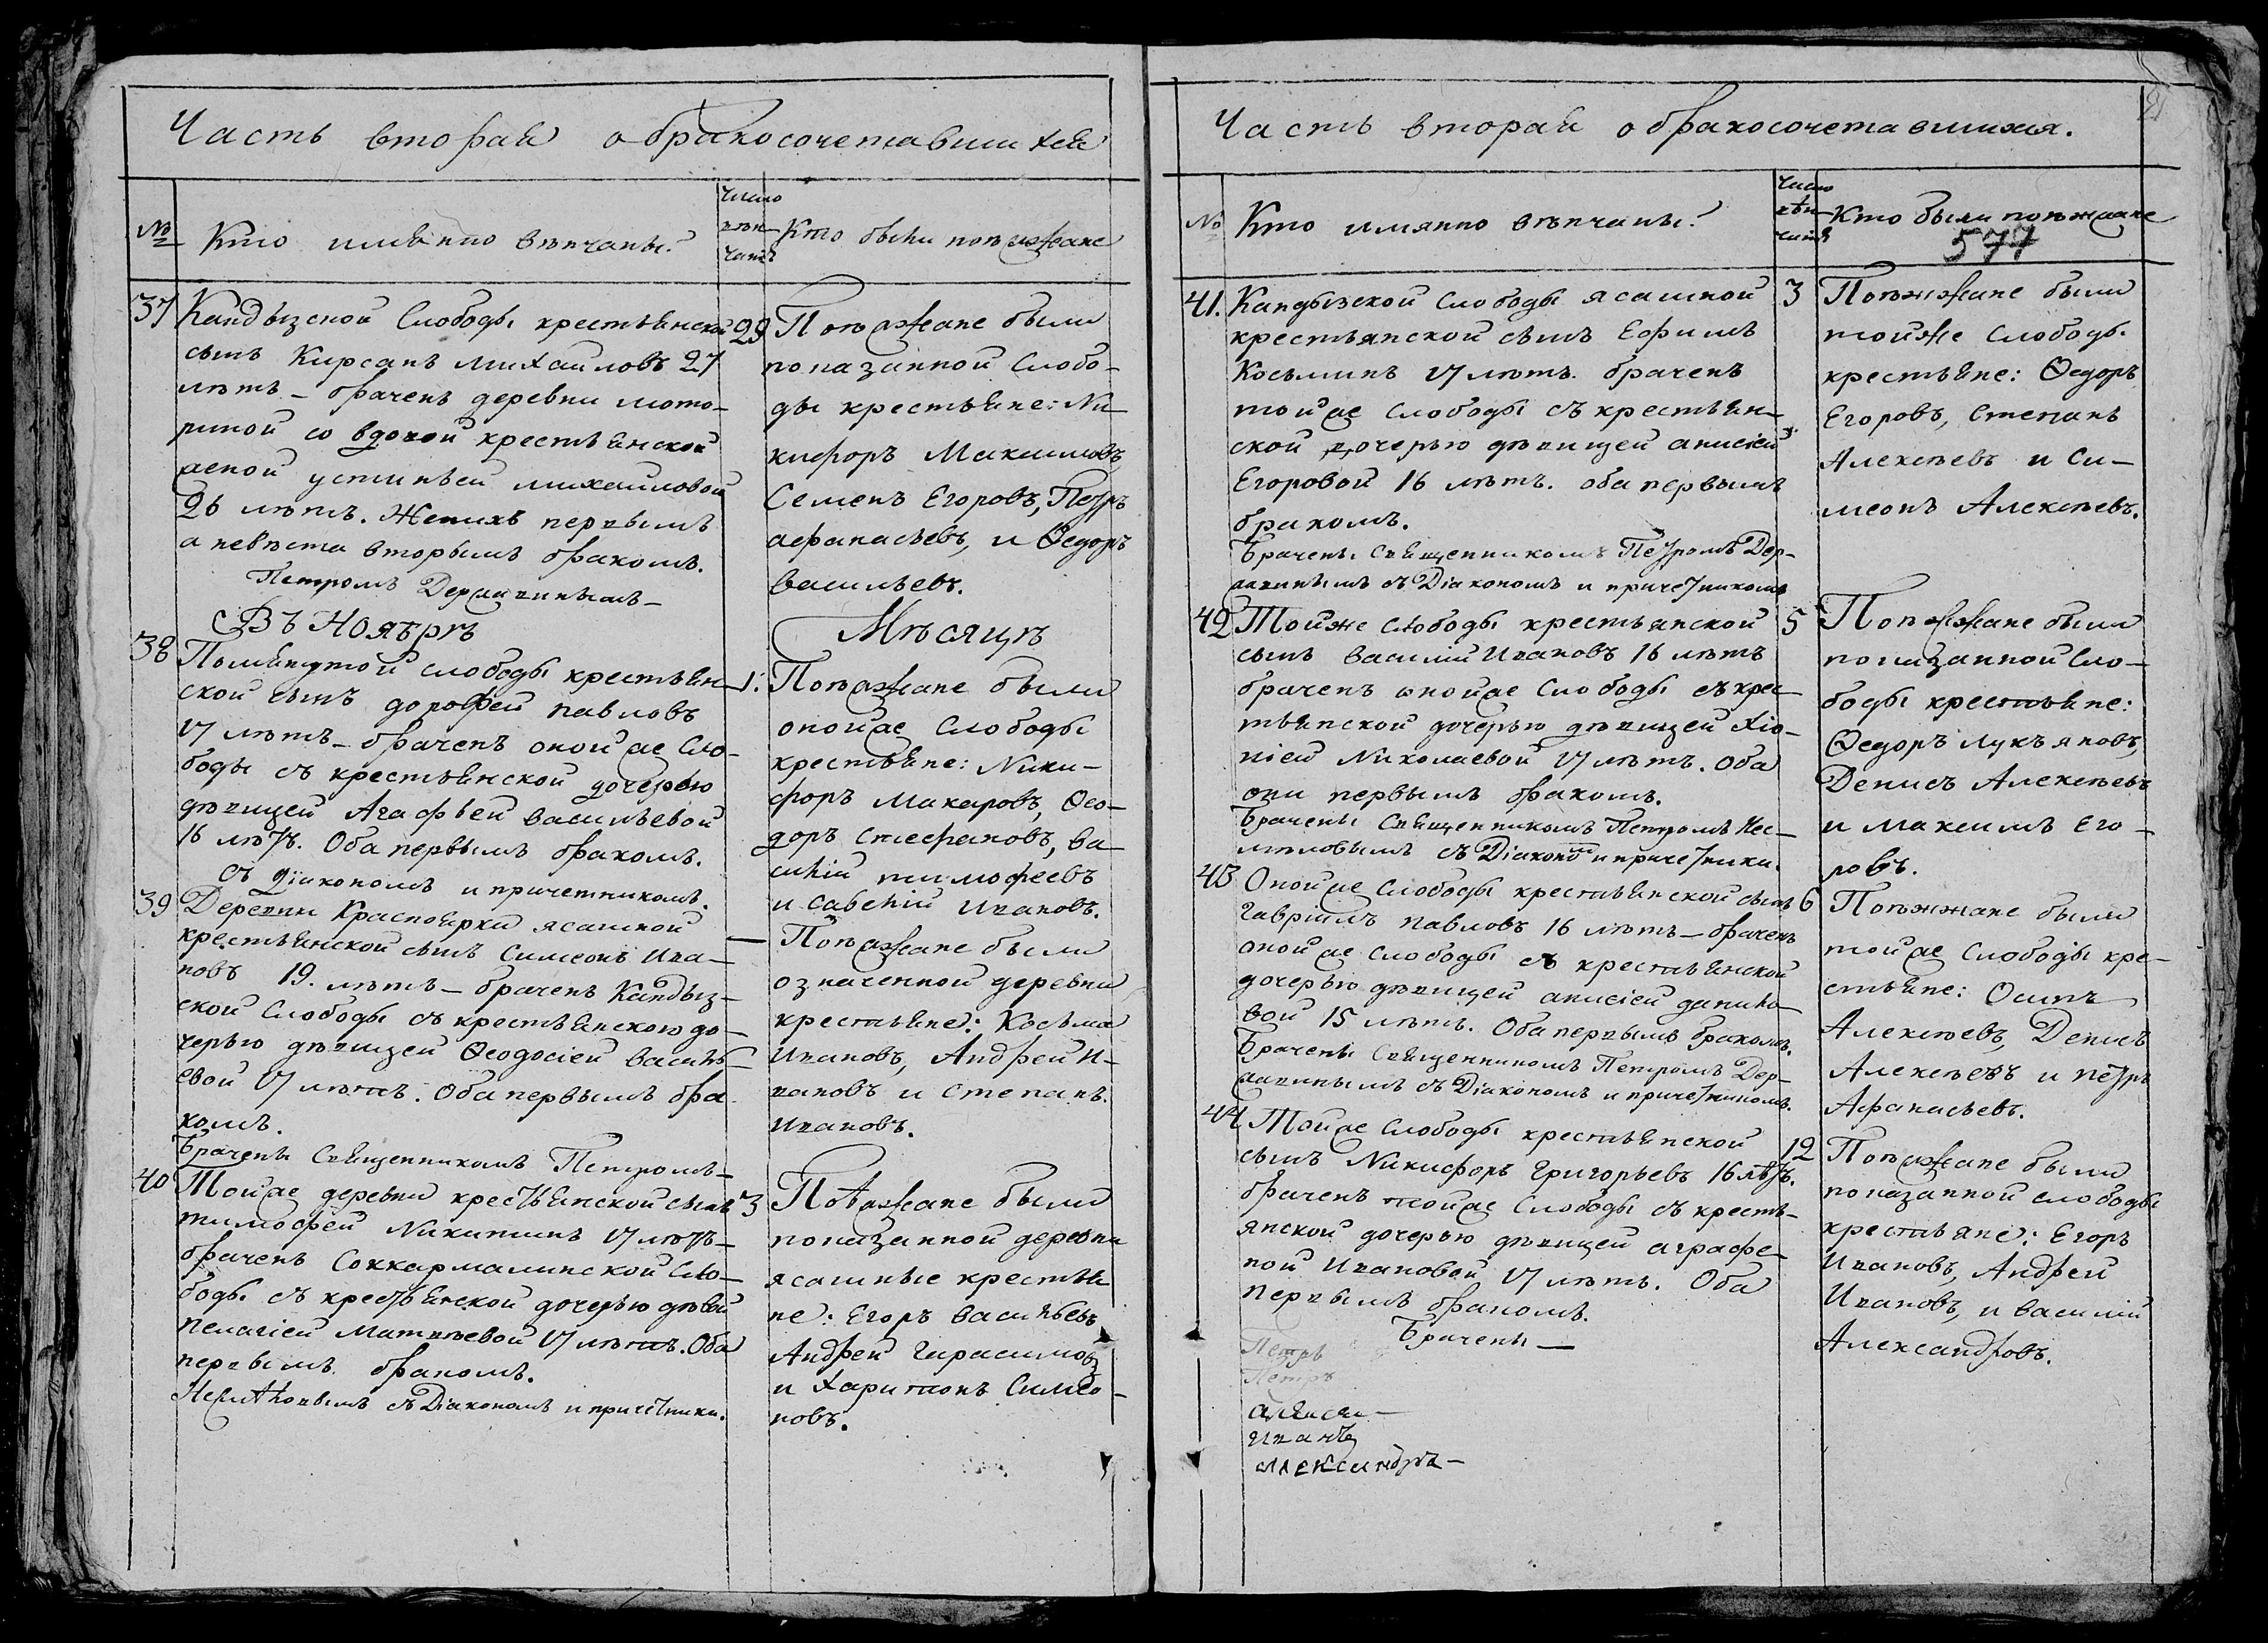 Часть вторая о бракосочетавшихся
№
Кто имянно венчаны?
Число
вен-
чанiя
Кто были поезжане
37
Кандызской Слободы крестьянской
сынъ Кирсанъ Михаиловъ 27
летъ - браченъ деревни
со вдовой крестьянской
женой устиньей михаиловой
26 летъ. Женихъ первымъ
а невеста вторымъ бракомъ.
Петромъ Державинымъ -
29
Поезжане были
показанной Слобо-
ды крестьяне: Ни-
кифоръ Максимовъ,
Семенъ Егоровъ, Петръ
афанасьевъ, и Ѳедоръ
васильевъ.
Въ Ноябрѣ
Мѣсяцѣ
38
Помянутой слободы крестьян-
ской сынъ дорофей павловъ
17 летъ - браченъ оной же Сло-
боды съ крестьянской дочерью
девицей Агафьей васильевой
16 летъ. Оба первымъ бракомъ.
съ дiакономъ и причетникомъ.
1.
Поезжане были
оной же Слободы
крестьяне: Ники-
форъ Макаровъ, Ѳео-
доръ стефановъ, ва-
силiй тимофеевъ
и савелiй ивановъ.
39
Деревни Красноярки ясашной
крестьянской сынъ Симеонъ ива-
новъ 19. летъ - браченъ Кандыз-
ской Слободы съ крестьянскою до-
черью девицей Ѳеодосiей василь-
евой 17 летъ. Оба первымъ бра-
комъ.
Брачены Священникомъ Петромъ -
—
Поезжане были
означенной деревни
крестьяне: Косьма
Ивановъ, Андрей И-
вановъ и Степанъ
Ивановъ.
40
Той же деревни крестьянской сынъ
тимофей Никитинъ 17 летъ -
браченъ Соккармалинской Сло-
боды съ крестьянской дочерью девой
пелагiей Матвеевой 17 летъ. Оба
первымъ бракомъ.
Несмѣловымъ съ Дiакономъ и причетники.
3
Поѣзжане были
показанной деревни
ясашные крестья
не: Егоръ васильевъ
Андрей Гарасимовъ
и Харитонъ Симео-
новъ.
Часть вторая о бракосочетавшихся.
№
Кто имянно венчаны?
Число
вѣн-
чанiя
Кто были поезжане
577
41.
Кандызской Слободы ясашной
крестьянской сынъ Ефимъ
Косьминъ 17 летъ. браченъ
той же Слободы съ крестьян-
ской дочерью девицей анисiей
Егоровой 16 летъ. оба первымъ
бракомъ.
Брачены Священникомъ Петромъ Дер-
жавинымъ съ Дiакономъ и причетникомъ
3
Поезжжане были
тойже Слободы
крестьяне: Ѳедоръ
Егоровъ, Степанъ
Алексеевъ и Си-
меонъ Алексеевъ.
42
Тойже слободы крестьянской
сынъ василiй Ивановъ 16 летъ
браченъ оной же Слободы съ крес-
тьянской дочерью девицей Хiо-
нiей Николаевой 17 летъ. Оба
они первымъ бракомъ.
Брачены Священникомъ Петромъ Нес-
меловымъ съ Дiакономъ и причетники.
5
Поезжжане были
показанной Сло-
боды крестьяне:
Ѳедоръ лукъяновъ,
Денисъ Алексеевъ
и Максимъ Его-
ровъ.
43
Оной же Слободы крестьянской сынъ
Гаврiилъ павловъ 16 летъ - браченъ
оной же Слободы съ крестьянской
дочерью девицей анисiей данило-
вой 15 летъ. Оба первымъ бракомъ.
Брачены Священникомъ Петромъ Дер-
жавинымъ съ Дiакономъ и причетникомъ.
6
Поезжжане были
той же Слободы кре-
стьяне: Осипъ
Алексеевъ, Денисъ
Алексеевъ и петръ
Афанасьевъ.
44
Той же Слободы крестьянской
сынъ Никифоръ григорьевъ 16 лѣтъ.
браченъ той же Слободы съ кресть-
янской дочерью девицей аграфе-
ной Ивановой 17 летъ. Оба
первымъ бракомъ.
Брачены —
12
Поезжане были
показанной слободы
крестьяне: Егоръ
Ивановъ, Андрей
Ивановъ, и василiй
Александровъ.
Петръ
Петръ
алексеи -
иванъ
александра -